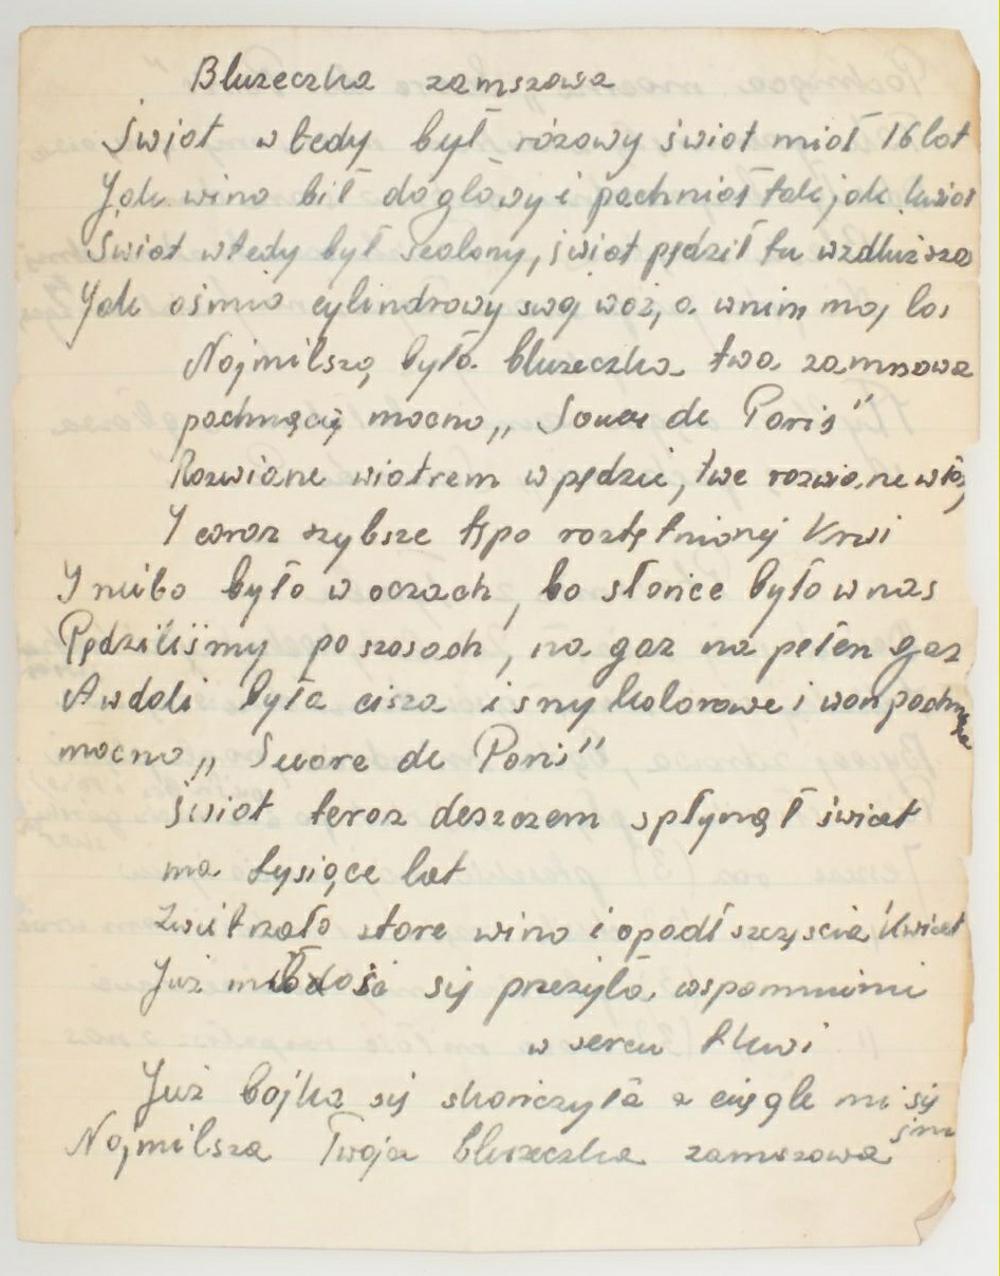 Bluzeczka zamszowa
Świat wtedy był różowy świat miał 16 lat
Jak wino bił do głowy i pachniał tak jak kwiat
Świat wtedy był szalony, świat pędził tu wzdłuż szos
Jak ośmio cylindrowy swój wóz, a wnim moj los
Najmilsza, była bluzeczka twa zamszowa
pachnącą mocno „ Souar de Paris"
Rozwiane wiatrem w pędzie, twe rozwiane wło
I coraz szybsze tępo roztętnionej krwi
I niebo było w oczach, bo słońce było w nas
Pędziliśmy po szosach, na gaz na pełen gaz
A wdali była cisza i sny kolorowe i woń pachnąca
mocno „ Suare de Paris"
Świat teraz deszczem spłynął świat
ma tysiące lat
Zwietrzało stare wino i opadł szczęścia kwiat
Już młodość się przeżyła, wspomnieni
w sercu tkwi
Już bajka się skończyła a ciągle mi się
śni
Najmilsza Twoja bluzeczka zamszowa